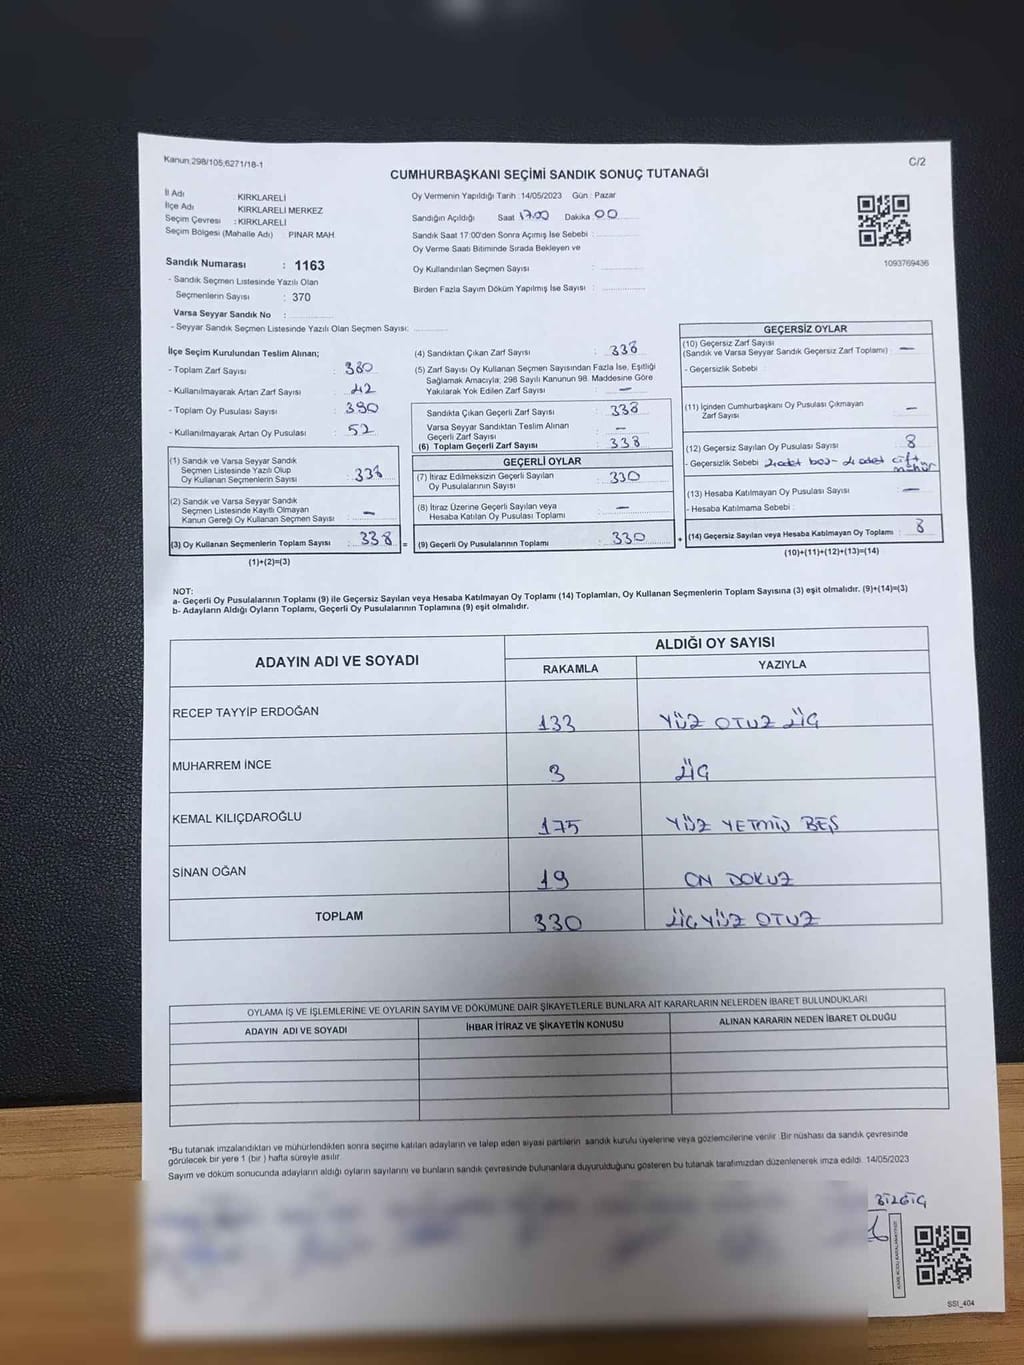 Kanun.298/105,6271/18-1
C/2
CUMHURBAŞKANI SEÇİMİ SANDIK SONUÇ TUTANAĞI
İl Adı KIRKLARELİ
İlçe Adı KIRKLARELİ MERKEZ
Seçim Çevresi : KIRKLARELİ
Seçim Bölgesi (Mahalle Adı) PINAR MAH
Sandık Numarası : 1163
- Sandık Seçmen Listesinde Yazılı Olan
Seçmenlerin Sayısı : 370
Varsa Seyyar Sandık No :
- Seyyar Sandık Seçmen Listesinde Yazılı Olan Seçmen Sayısı:
Oy Vermenin Yapıldığı Tarih :14/05/2023 Gün : Pazar
Sandığın Açıldığı Saat 17.00 Dakika 00
Sandık Saat 17:00'den Sonra Açımış İse Sebebi :
Oy Verme Saati Bitiminde Sırada Bekleyen ve
Oy Kullandırılan Seçmen Sayısı :
Birden Fazla Sayım Döküm Yapılmış İse Sayısı :
1093769436
İlçe Seçim Kurulundan Teslim Alınan;
- Toplam Zarf Sayısı : 380
- Kullanılmayarak Artan Zarf Sayısı : 42
- Toplam Oy Pusulası Sayısı : 390
- Kullanılmayarak Artan Oy Pusulası : 52
(1) Sandık ve Varsa Seyyar Sandık
Seçmen Listesinde Yazılı Olup
Oy Kullanan Seçmenlerin Sayısı : 338
(2) Sandık ve Varsa Seyyar Sandık
Seçmen Listesinde Kayıtlı Olmayan
Kanun Gereği Oy Kullanan Seçmen Sayısı : —
(3) Oy Kullanan Seçmenlerin Toplam Sayısı : 338 =
(1)+(2)=(3)
(4) Sandıktan Çıkan Zarf Sayısı : 338
(5) Zarf Sayısı Oy Kullanan Seçmen Sayısından Fazla İse, Eşitliği
Sağlamak Amacıyla; 298 Sayılı Kanunun 98. Maddesine Göre
Yakılarak Yok Edilen Zarf Sayısı : —
Sandıkta Çıkan Geçerli Zarf Sayısı : 338
Varsa Seyyar Sandıktan Teslim Alınan
Geçerli Zarf Sayısı : —
(6) Toplam Geçerli Zarf Sayısı : 338
GEÇERLİ OYLAR
(7) İtiraz Edilmeksizin Geçerli Sayılan
Oy Pusulalarının Sayısı : 330
(8) İtiraz Üzerine Geçerli Sayılan veya
Hesaba Katılan Oy Pusulası Toplamı : —
(9) Geçerli Oy Pusulalarının Toplamı : 330 +
GEÇERSİZ OYLAR
(10) Geçersiz Zarf Sayısı
(Sandık ve Varsa Seyyar Sandık Geçersiz Zarf Toplamı) : —
- Geçersizlik Sebebi :
(11) İçinden Cumhurbaşkanı Oy Pusulası Çıkmayan
Zarf Sayısı : —
(12) Geçersiz Sayılan Oy Pusulası Sayısı : 8
- Geçersizlik Sebebi 4 adet boş - 4 adet çift
mühür
(13) Hesaba Katılmayan Oy Pusulası Sayısı : —
- Hesaba Katılmama Sebebi :
(14) Geçersiz Sayılan veya Hesaba Katılmayan Oy Toplamı : 8
(10)+(11)+(12)+(13)=(14)
NOT:
a- Geçerli Oy Pusulalarının Toplamı (9) ile Geçersiz Sayılan veya Hesaba Katılmayan Oy Toplamı (14) Toplamları, Oy Kullanan Seçmenlerin Toplam Sayısına (3) eşit olmalıdır. (9)+(14)=(3)
b- Adayların Aldığı Oyların Toplamı, Geçerli Oy Pusulalarının Toplamına (9) eşit olmalıdır.
ADAYIN ADI VE SOYADI
ALDIĞI OY SAYISI
RAKAMLA YAZIYLA
RECEP TAYYİP ERDOĞAN 133 YÜZ OTUZ ÜÇ
MUHARREM İNCE 3 ÜÇ
KEMAL KILIÇDAROĞLU 175 YÜZ YETMİŞ BEŞ
SİNAN OĞAN 19 ON DOKUZ
TOPLAM 330 ÜÇ YÜZ OTUZ
OYLAMA İŞ VE İŞLEMLERİNE VE OYLARIN SAYIM VE DÖKÜMÜNE DAİR ŞİKAYETLERLE BUNLARA AİT KARARLARIN NELERDEN İBARET BULUNDUKLARI
ADAYIN ADI VE SOYADI İHBAR İTİRAZ VE ŞİKAYETİN KONUSU ALINAN KARARIN NEDEN İBARET OLDUĞU
*Bu tutanak imzalandıktan ve mühürlendikten sonra seçime katılan adayların ve talep eden siyasi partilerin sandık kurulu üyelerine veya gözlemcilerine verilir. Bir nüshası da sandık çevresinde
görülecek bir yere 1 (bir ) hafta süreyle asılır.
Sayım ve döküm sonucunda adayların aldığı oyların sayılarını ve bunların sandık çevresinde bulunanlara duyurulduğunu gösteren bu tutanak tarafımızdan düzenlenerek imza edildi. 14/05/2023
SSt_404